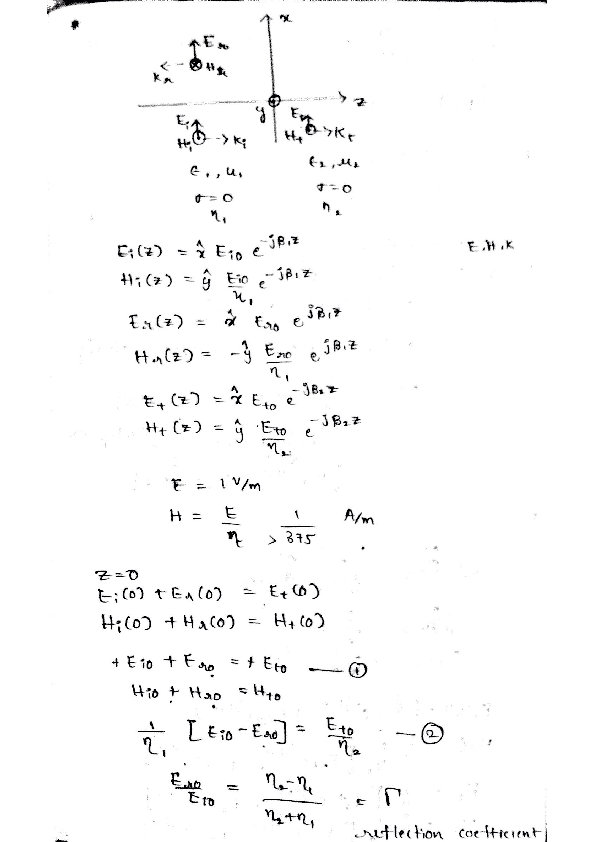 x
E_ro
K_r H_r
z
y
E_i E_t
H_i K_i H_t K_t
ϵ₁, μ₁ ϵ₂, μ₂
σ=0 σ=0
η₁ η₂
E_i(z) = x̂ E_io e^{-jβ₁z} E.H.K
H_i(z) = ŷ E_io/η₁ e^{-jβ₁z}
E_r(z) = x̂ E_ro e^{jβ₁z}
H_r(z) = -ŷ E_ro/η₁ e^{jβ₁z}
E_t(z) = x̂ E_to e^{-jβ₂z}
H_t(z) = ŷ E_to/η₂ e^{-jβ₂z}
E = 1 V/m
H = E/η > 1/375 A/m
z=0
E_i(0) + E_r(0) = E_t(0)
H_i(0) + H_r(0) = H_t(0)
+ E_io + E_ro = + E_to — ①
H_io + H_ro = H_to
1/η₁ [E_io - E_ro] = E_to/η₂ — ②
E_ro/E_io = η₂-η₁/η₂+η₁ = Γ
reflection coefficient